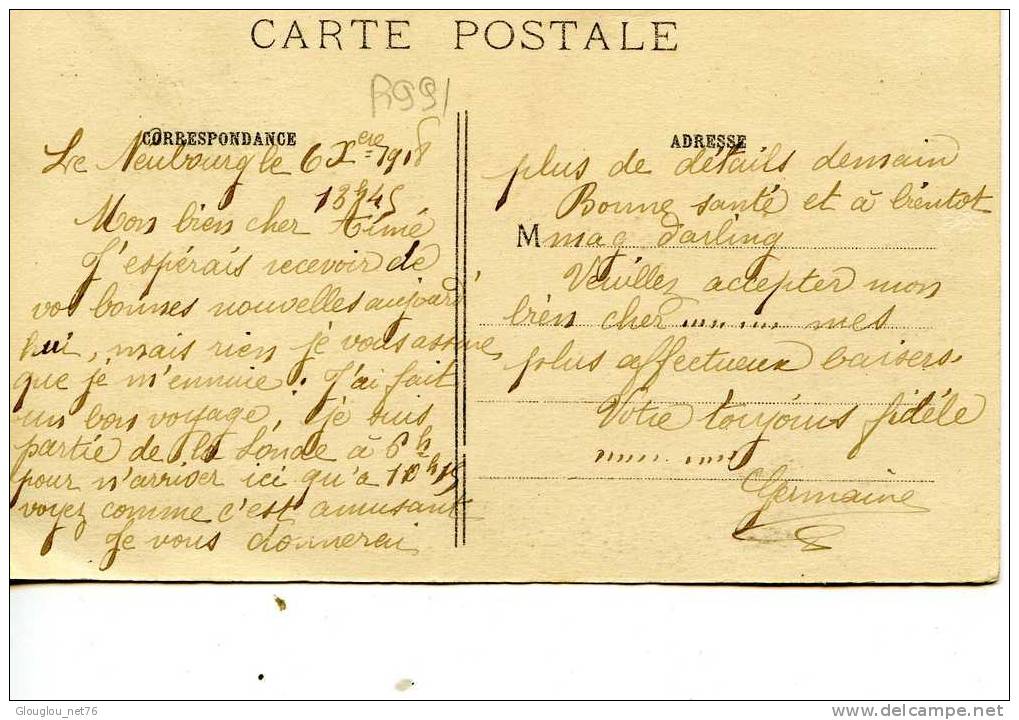 CARTE POSTALE
R991
CORRESPONDANCE
Le Neubourg le 6 Xere 1918
18h45
Mon bien cher Aimé
J'espérais recevoir de
vos bonnes nouvelles aujourd'
hui, mais rien je vous assure
que je m'ennuie. J'ai fait
un bon voyage, je suis
partie de la Londe à 6h
pour n'arriver ici qu'à 10h15
voyez comme c'est amusant
Je vous donnerai
ADRESSE
plus de détails demain
Bonne santé et à bientot
M mag darling
Veuillez accepter mon
bien cher ..... .... mes
plus affectueux baisers.
Votre toujours fidèle
...... ....
Germaine
Glouglou_net76
delcampe.net